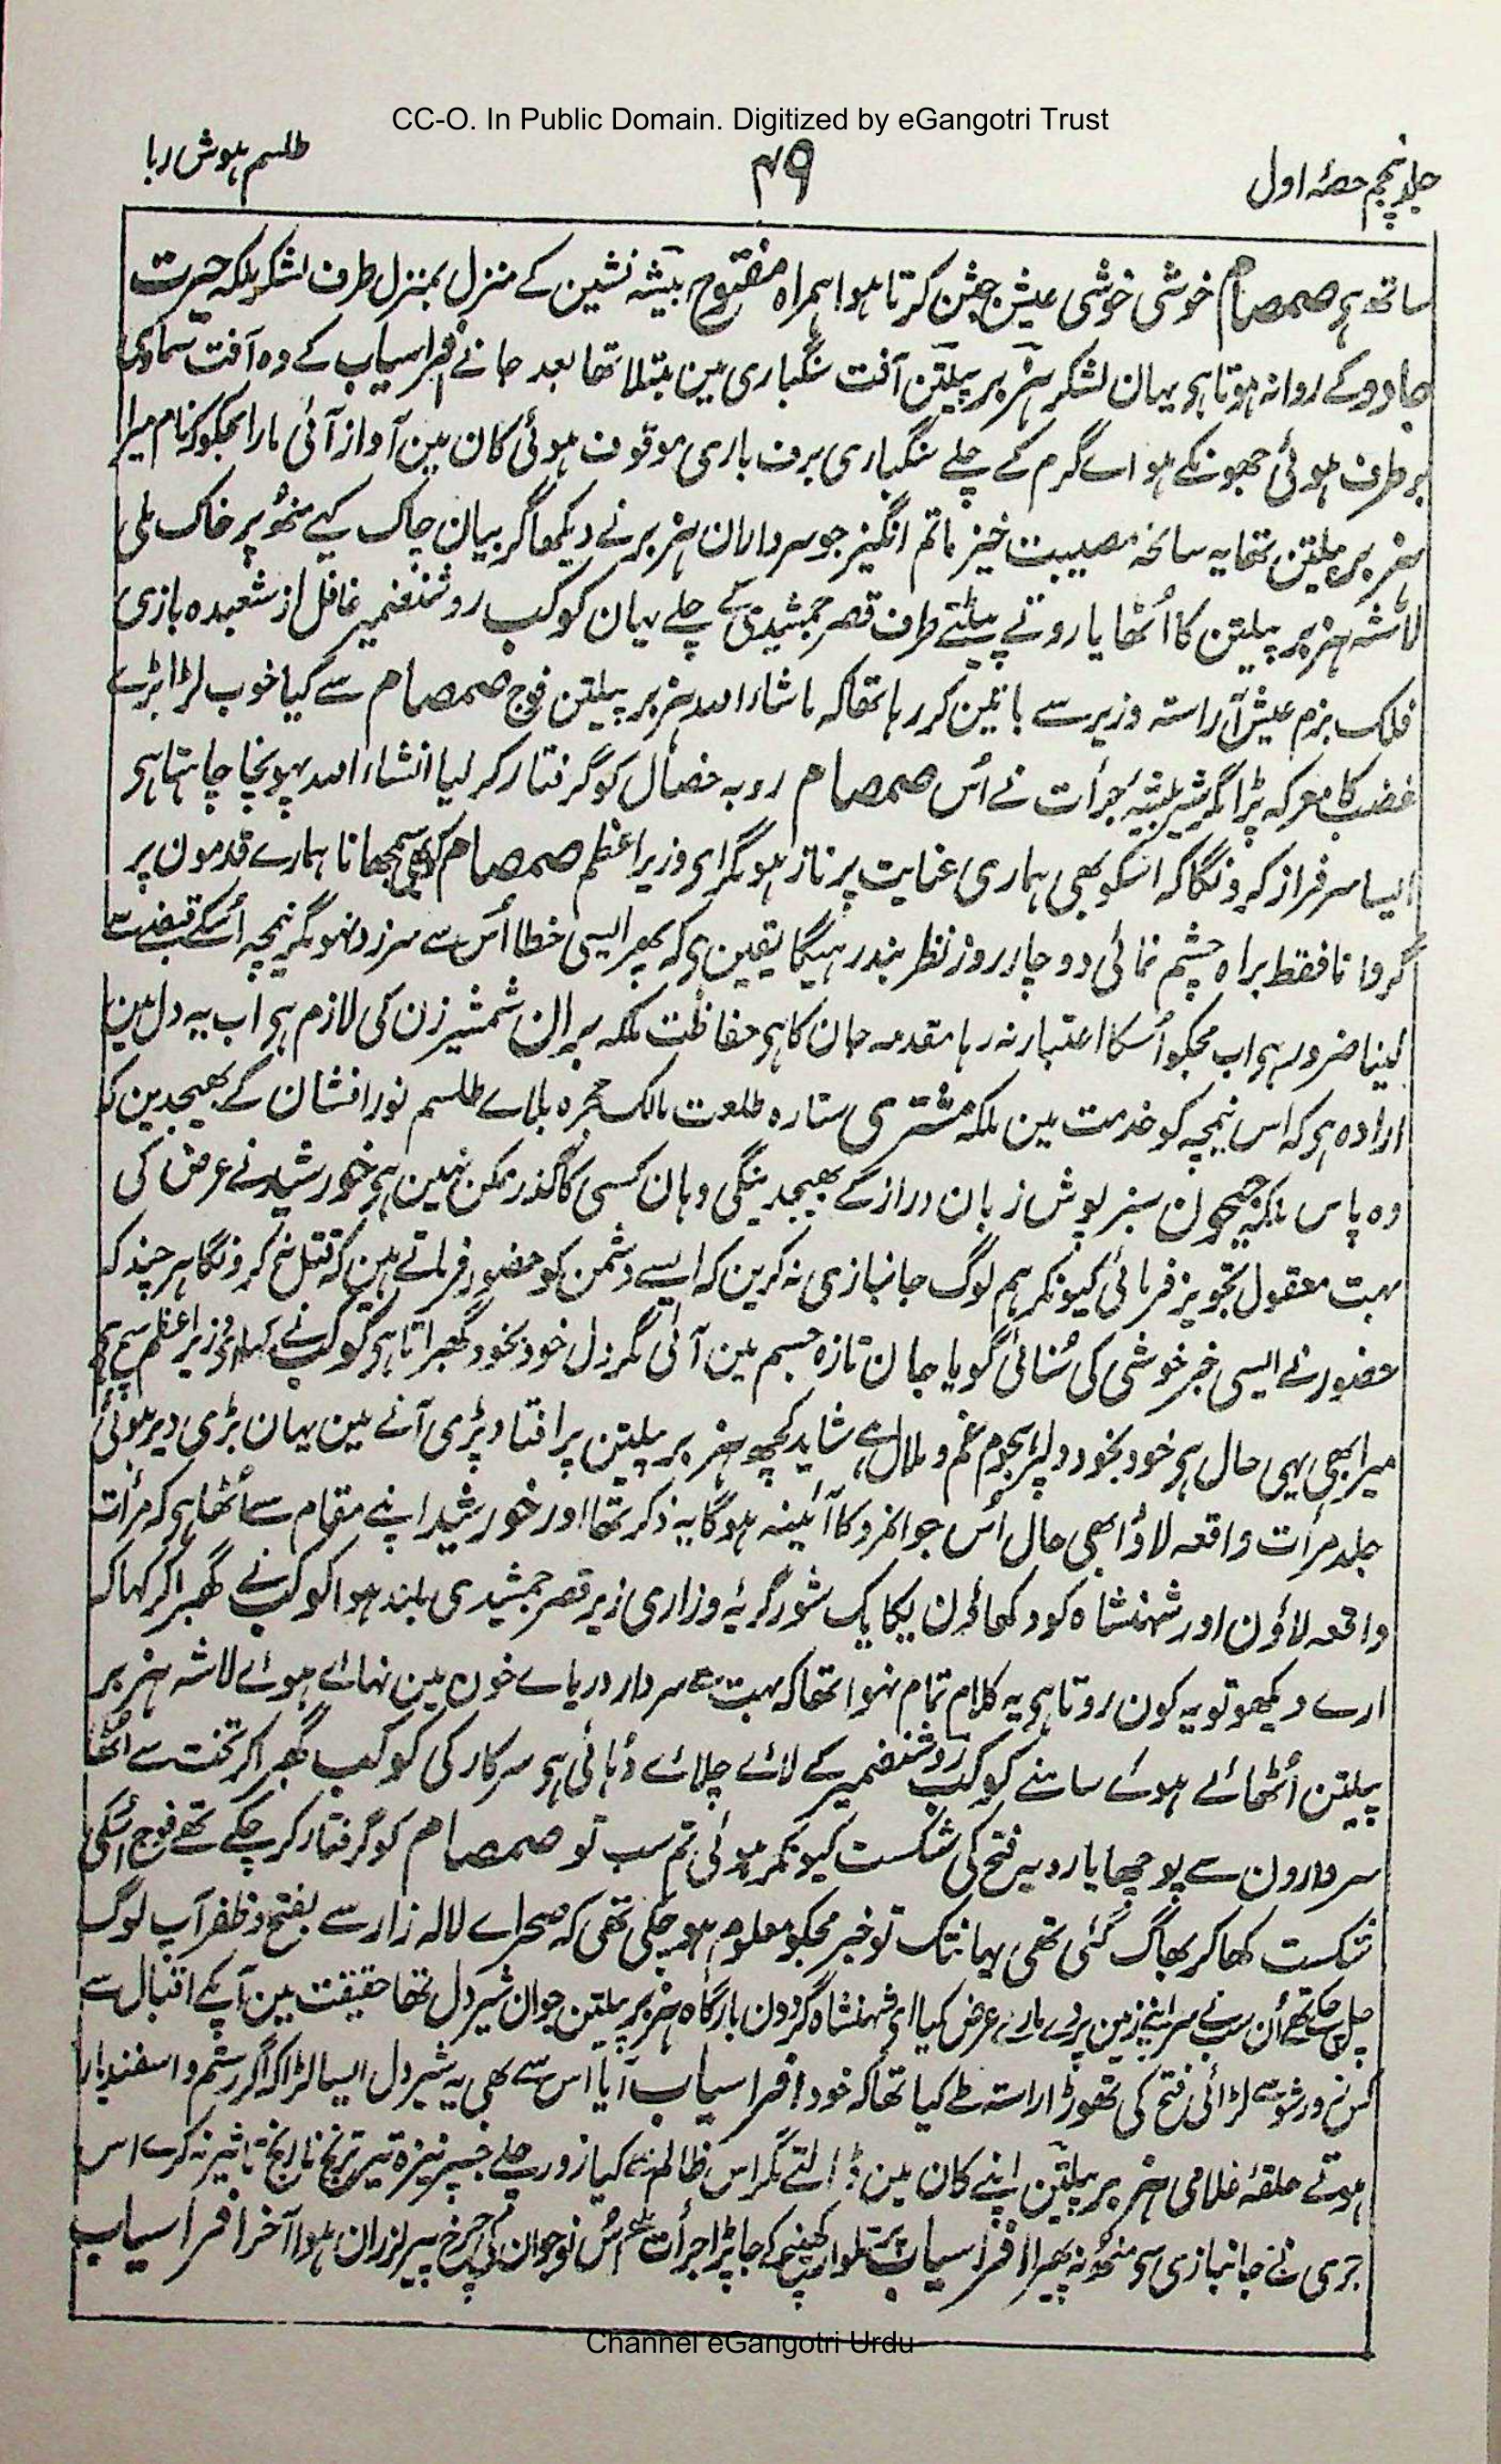 CC-O. In Public Domain. Digitized by eGangotri Trust
جلد پنجم حصۂ اول
۴۹
طلسم ہوش ربا
ساتھ ہی صمصام خوشی خوشی عیش جشن کرتا ہوا ہمراہ مفتوح بیشہ نشین کے منزل بمنزل طرف لشکر ملکہ حیرت
جادو کے روانہ ہوتا ہی یہان لشکر ہنر بر پیلتن آفت سنگباری مین مبتلا تھا بعد جانے افراسیاب کے وہ آفت سماوی
برطرف ہوئی جھونکے ہواے گرم کے چلے سنگباری برف باری موقوف ہوئی کان مین آواز آئی مارا مجکو کہ نام میرا
ہنر بر پیلتن تھا یہ سانحہ مصیبت خیز ماتم انگیز جو سرداران ہنر بر نے دیکھا گریبان چاک کیے منھ پر خاک ملی
لاشہ ہنر بر پیلتن کا اُٹھایا روتے پیٹتے طرف قصر جمشیدی کے چلے یہان کوکب روشنضمیر غافل از شعبدہ بازی
فلک بزم عیش آراستہ وزیر سے باتین کر رہا تھا کہ ماشاراللہ ہنر بر پیلتن فوج صمصام سے کیا خوب لڑا بڑے
غضب کا معرکہ پڑا مگر شیر بیشۂ جرأت نے اُس صمصام روبہ خصال کو گرفتار کر لیا انشاء اللہ پہونچا چاہتا ہی
ایسا سرفراز کرونگا کہ اسکو بھی ہماری عنایت پر ناز ہو مگر ای وزیر اعظم صمصام کو بھی سمجھانا ہمارے قدمون پر
گروانا فقط براہ چشم نمائی دو چار روز نظر بند رہیگا یقین ہی کہ پھر ایسی خطا اُس سے سرزد نہو مگر نیمچہ اُسکے قبضے سے
لینا ضرور ہی اب مجکو اُسکا اعتبار نہ رہا مقدمہ جان کا ہی حفاظت ملکہ بران شمشیر زن کی لازم ہی اب یہ دل مین
ارادہ ہی کہ اس نیمچہ کو خدمت مین ملکہ مشتری ستارہ طلعت مالک حجرہ بلاے طلسم نور افشان کے بھیجدین کہ
وہ پاس ملکہ جیحون سبز پوش زبان دراز کے بھیجدینگی وہان کسی کا گذر ممکن نہین ہی خورشید نے عرض کی
بہت معقول تجویز فرمائی کیونکر ہم لوگ جانبازی نہ کرین کہ ایسے دشمن کو حضور فرماتے ہین کہ قتل نہ کرونگا ہر چند کہ
حضور نے ایسی خبر خوشی کی سُنائی گویا جان تازہ جسم مین آئی مگر دل خود بخود گھبراتا ہی کوکب نے کہا ای وزیر اعظم سچ ہی
میرا بھی یہی حال ہی خود بخود دلپر ہجوم غم و ملال ہے شاید کچھ ہنر بر پیلتن پر افتاد پڑی آنے مین یہان بڑی دیر ہوئی
جلد مرأت واقعہ لاؤ ابھی حال اُس جوانمرد کا آئینہ ہوگا یہ ذکر تھا اور خورشید اپنے مقام سے اُٹھا ہی کہ مرأت
واقعہ لاؤن اور شہنشاہ کو دکھاؤن یکایک شور گریہ و زاری زیر قصر جمشیدی بلند ہوا کوکب نے گھبرا کر کہا کہ
ارے دیکھو تو یہ کون روتا ہی یہ کلام تمام نہوا تھا کہ بہت سے سردار دریاے خون مین نہاے ہوے لاشہ ہنر بر
پیلتن اُٹھائے ہوے سامنے کوکب روشنضمیر کے لائے چلائے دُہائی ہی سرکار کی کوکب گھبرا کر تخت سے اُٹھا
سردارون سے پوچھا یارو یہ فتح کی شکست کیونکر ہوئی تم سب تو صمصام کو گرفتار کر چکے تھے فوج اُسکی
شکست کھا کر بھاگ گئی تھی یہانتک تو خبر مجکو معلوم ہو چکی تھی کہ صحراے لالہ زار سے بفتح و ظفر آپ لوگ
چل چکے تھے اُن سب نے سر اپنے زمین پر دے مارے عرض کیا ای شہنشاہ گردون بارگاہ ہنر بر پیلتن جوان شیر دل تھا حقیقت مین آپکے اقبال سے
کس زور شور سے لڑائی فتح کی تھوڑا راستہ طے کیا تھا کہ خود افراسیاب آیا اس سے بھی یہ شیر دل ایسا لڑا کہ اگر رستم و اسفندیار
ہوتے حلقۂ غلامی ہنر بر پیلتن اپنے کان مین ڈالتے مگر اس ظالم سے کیا زور چلے جسپر نیزہ تیر ترنج نارنج تاثیر نہ کرے اس
جری نے جانبازی سے منھ نہ پھیرا افراسیاب پر تلوار کھینچ کے جا پڑا جرأت اُس نوجوان کی چرخ پیر لرزان ہوا آخر افراسیاب
Channel eGangotri Urdu